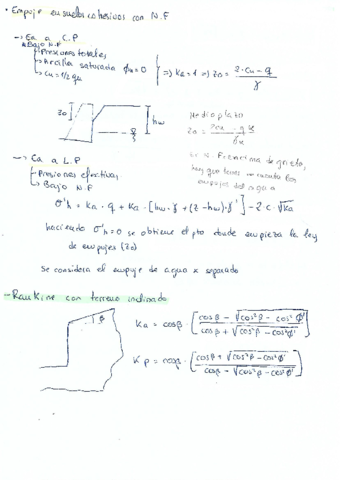 • Empuje en suelos cohesivos con N.F
→ Ea a C.P
↳ Bajo N.F
↳ Presiones totales
↳ Arcilla saturada ϕu = 0
↳ Cu = 1/2 qu
⇒ Ka = 1 ⇒ Zo = (2·Cu - q) / γ
Zo
hw
Medio plazo
→ Ea a L.P
↳ Presiones efectivas
↳ Bajo N.F.
σ'h = Ka · q + Ka · [hw · γ + (z - hw) · γ'] - 2·c · √Ka
haciendo σ'h = 0 se obtiene el pto donde empieza la ley
de empujes (Zo)
Se considera el empuje de agua x separado
- Rankine con terreno inclinado
β
Ka = cosβ · [(cosβ - √(cos²β - cos²ϕ')) / (cosβ + √(cos²β - cos²ϕ'))]
Kp = cosβ · [(cosβ + √(cos²β - cos²ϕ')) / (cosβ - √(cos²β - cos²ϕ'))]